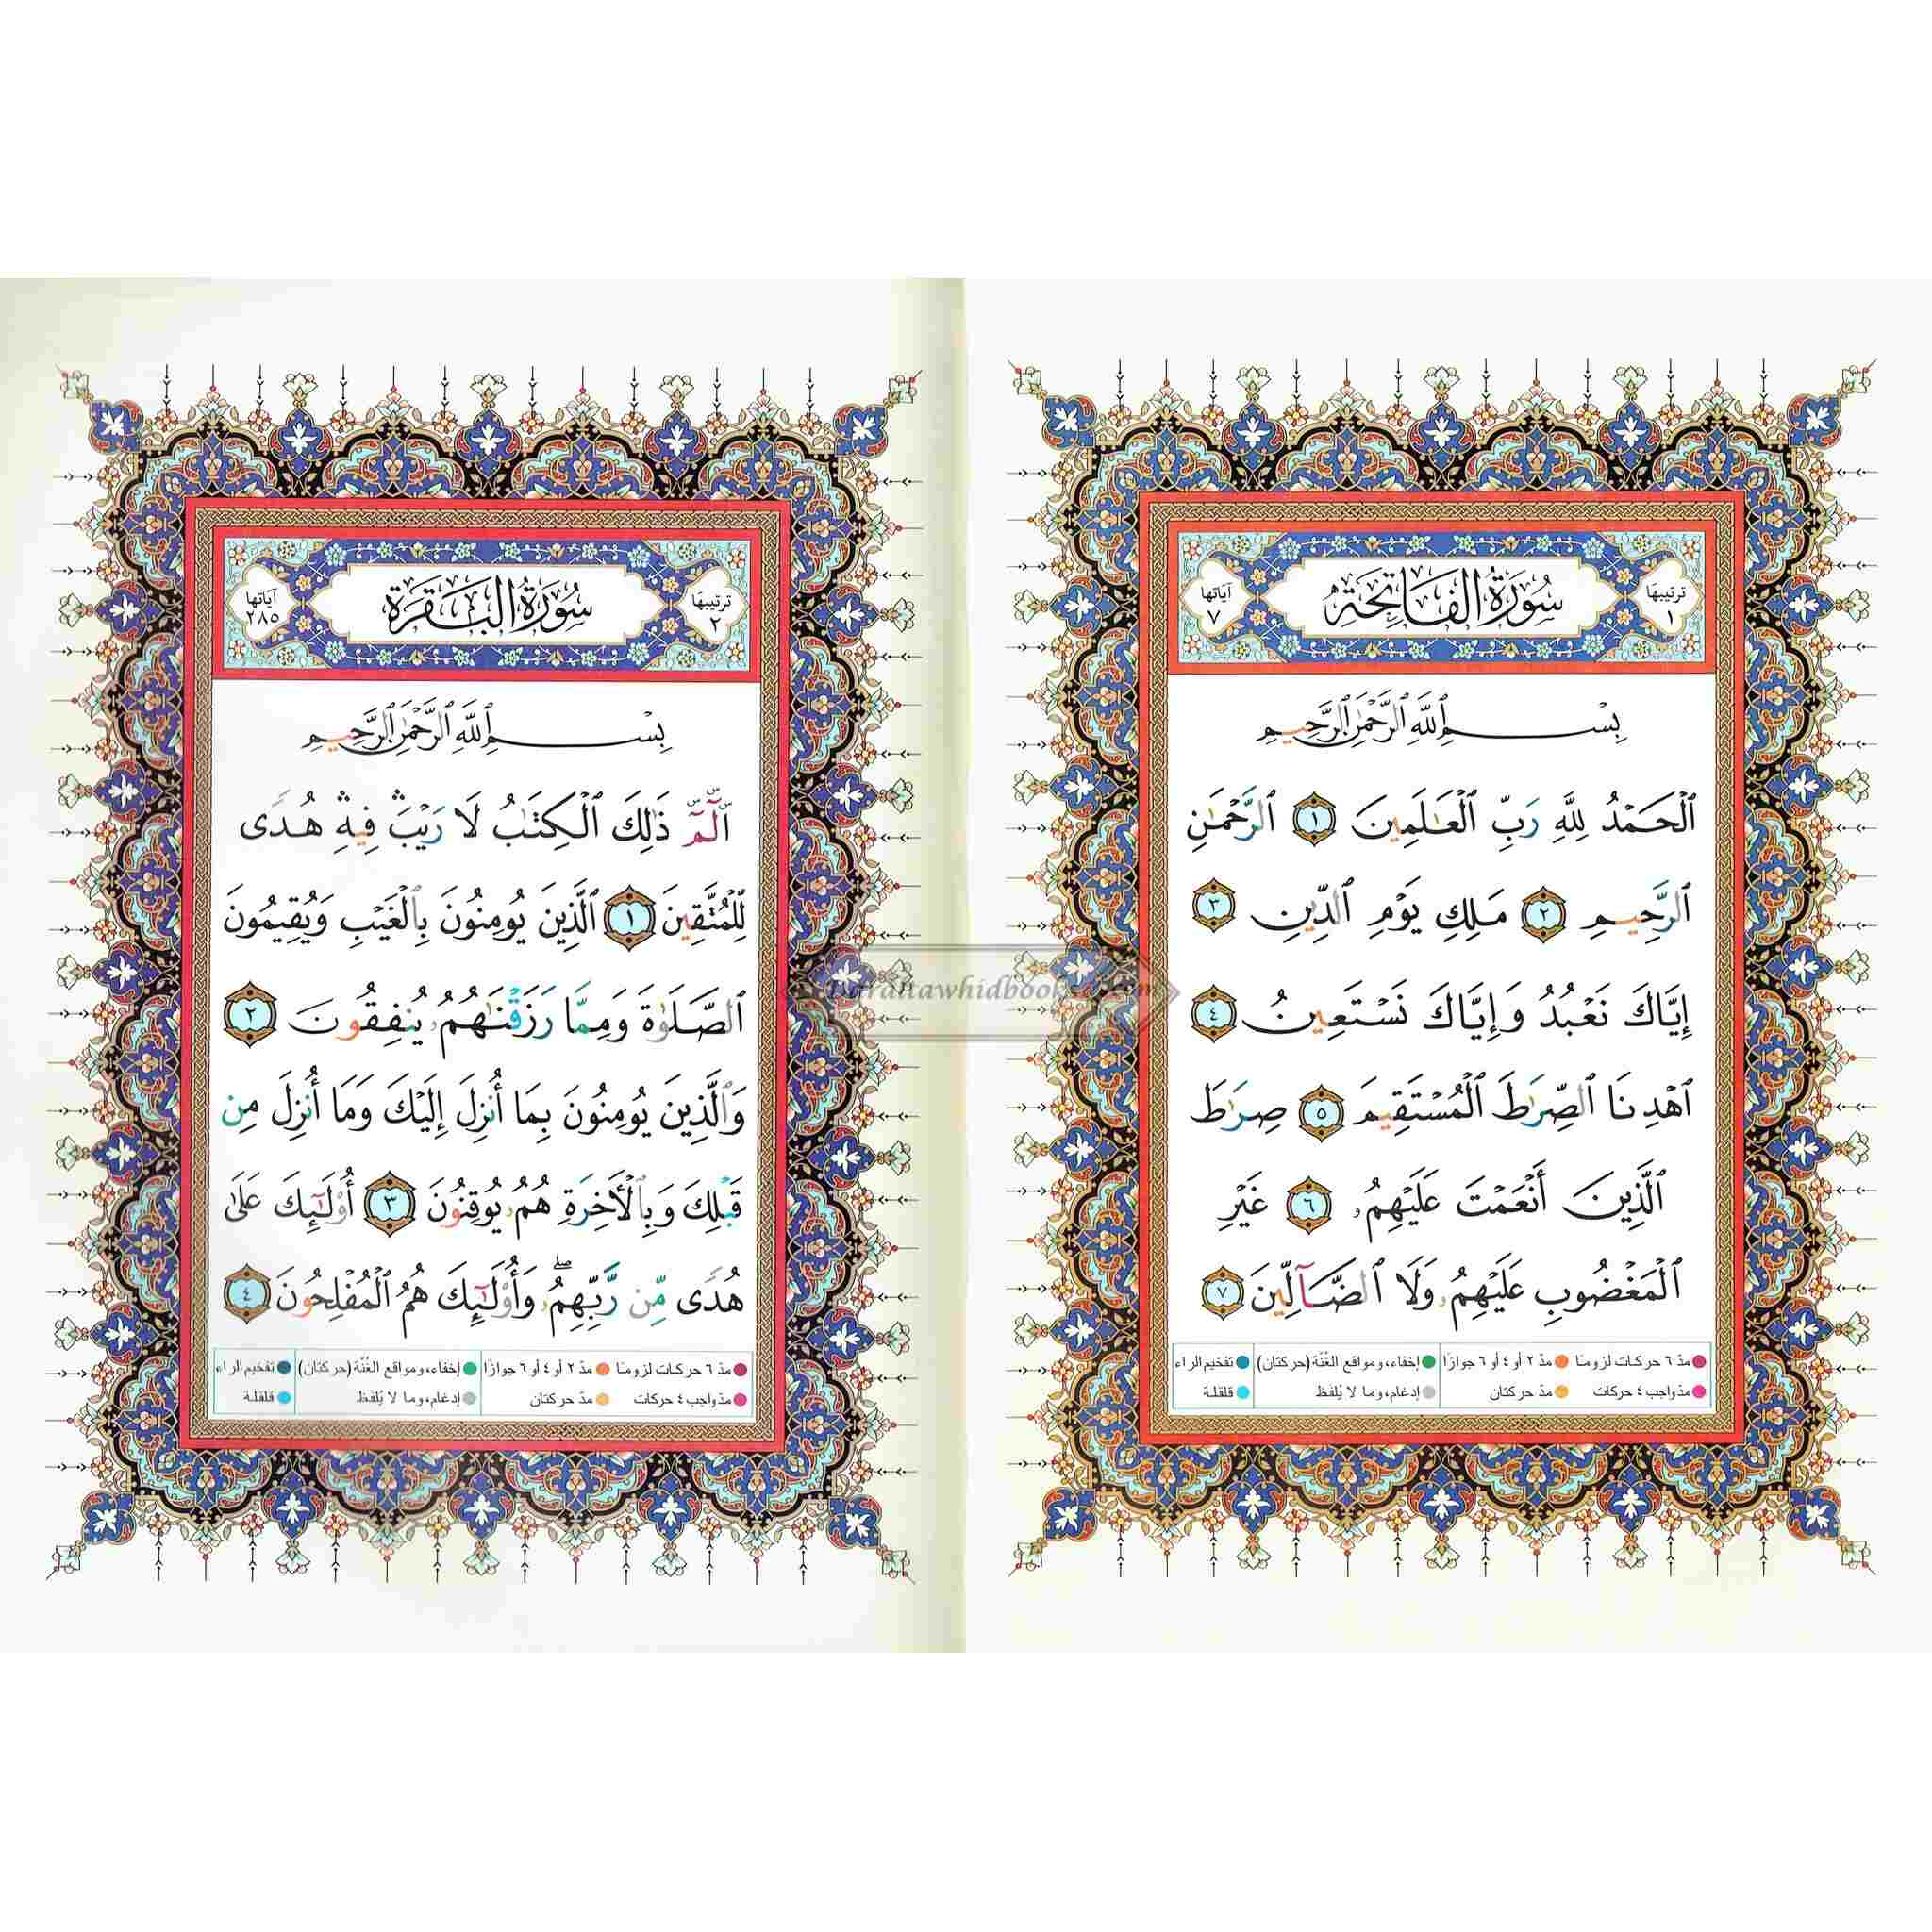 ترتيبها ١
سُورَةُ الفَاتِحَةِ
آياتها ٧
بِسْمِ ٱللَّهِ ٱلرَّحْمَٰنِ ٱلرَّحِيمِ
ٱلْحَمْدُ لِلَّهِ رَبِّ ٱلْعَٰلَمِينَ ١ ٱلرَّحْمَٰنِ
ٱلرَّحِيمِ ٢ مَلِكِ يَوْمِ ٱلدِّينِ ٣
إِيَّاكَ نَعْبُدُ وَإِيَّاكَ نَسْتَعِينُ ٤
ٱهْدِنَا ٱلصِّرَٰطَ ٱلْمُسْتَقِيمَ ٥ صِرَٰطَ
ٱلَّذِينَ أَنْعَمْتَ عَلَيْهِمُۥ ٦ غَيْرِ
ٱلْمَغْضُوبِ عَلَيْهِمُۥ وَلَا ٱلضَّآلِّينَ ٧
مدّ ٦ حركات لزومًا مدّ ٢ أو ٤ أو ٦ جوازًا إخفاء، ومواقع الغُنّة (حركتان) تفخيم الراء
مدّ واجب ٤ حركات مدّ حركتان إدغام، وما لا يُلفظ قلقلة
ترتيبها ٢
سُورَةُ البَقَرَةِ
آياتها ٢٨٥
بِسْمِ ٱللَّهِ ٱلرَّحْمَٰنِ ٱلرَّحِيمِ
الٓمٓ ذَٰلِكَ ٱلْكِتَٰبُ لَا رَيْبَۛ فِيهِۛ هُدًى
لِّلْمُتَّقِينَ ١ ٱلَّذِينَ يُومِنُونَ بِٱلْغَيْبِ وَيُقِيمُونَ
ٱلصَّلَوٰةَ وَمِمَّا رَزَقْنَٰهُمُۥ يُنفِقُونَ ٢
وَٱلَّذِينَ يُومِنُونَ بِمَا أُنزِلَ إِلَيْكَ وَمَا أُنزِلَ مِن
قَبْلِكَ وَبِٱلْأَخِرَةِ هُمُۥ يُوقِنُونَ ٣ أُوْلَٰٓئِكَ عَلَىٰ
هُدًى مِّن رَّبِّهِمُۥۖ وَأُوْلَٰٓئِكَ هُمُ ٱلْمُفْلِحُونَ ٤
مدّ ٦ حركات لزومًا مدّ ٢ أو ٤ أو ٦ جوازًا إخفاء، ومواقع الغُنّة (حركتان) تفخيم الراء
مدّ واجب ٤ حركات مدّ حركتان إدغام، وما لا يُلفظ قلقلة